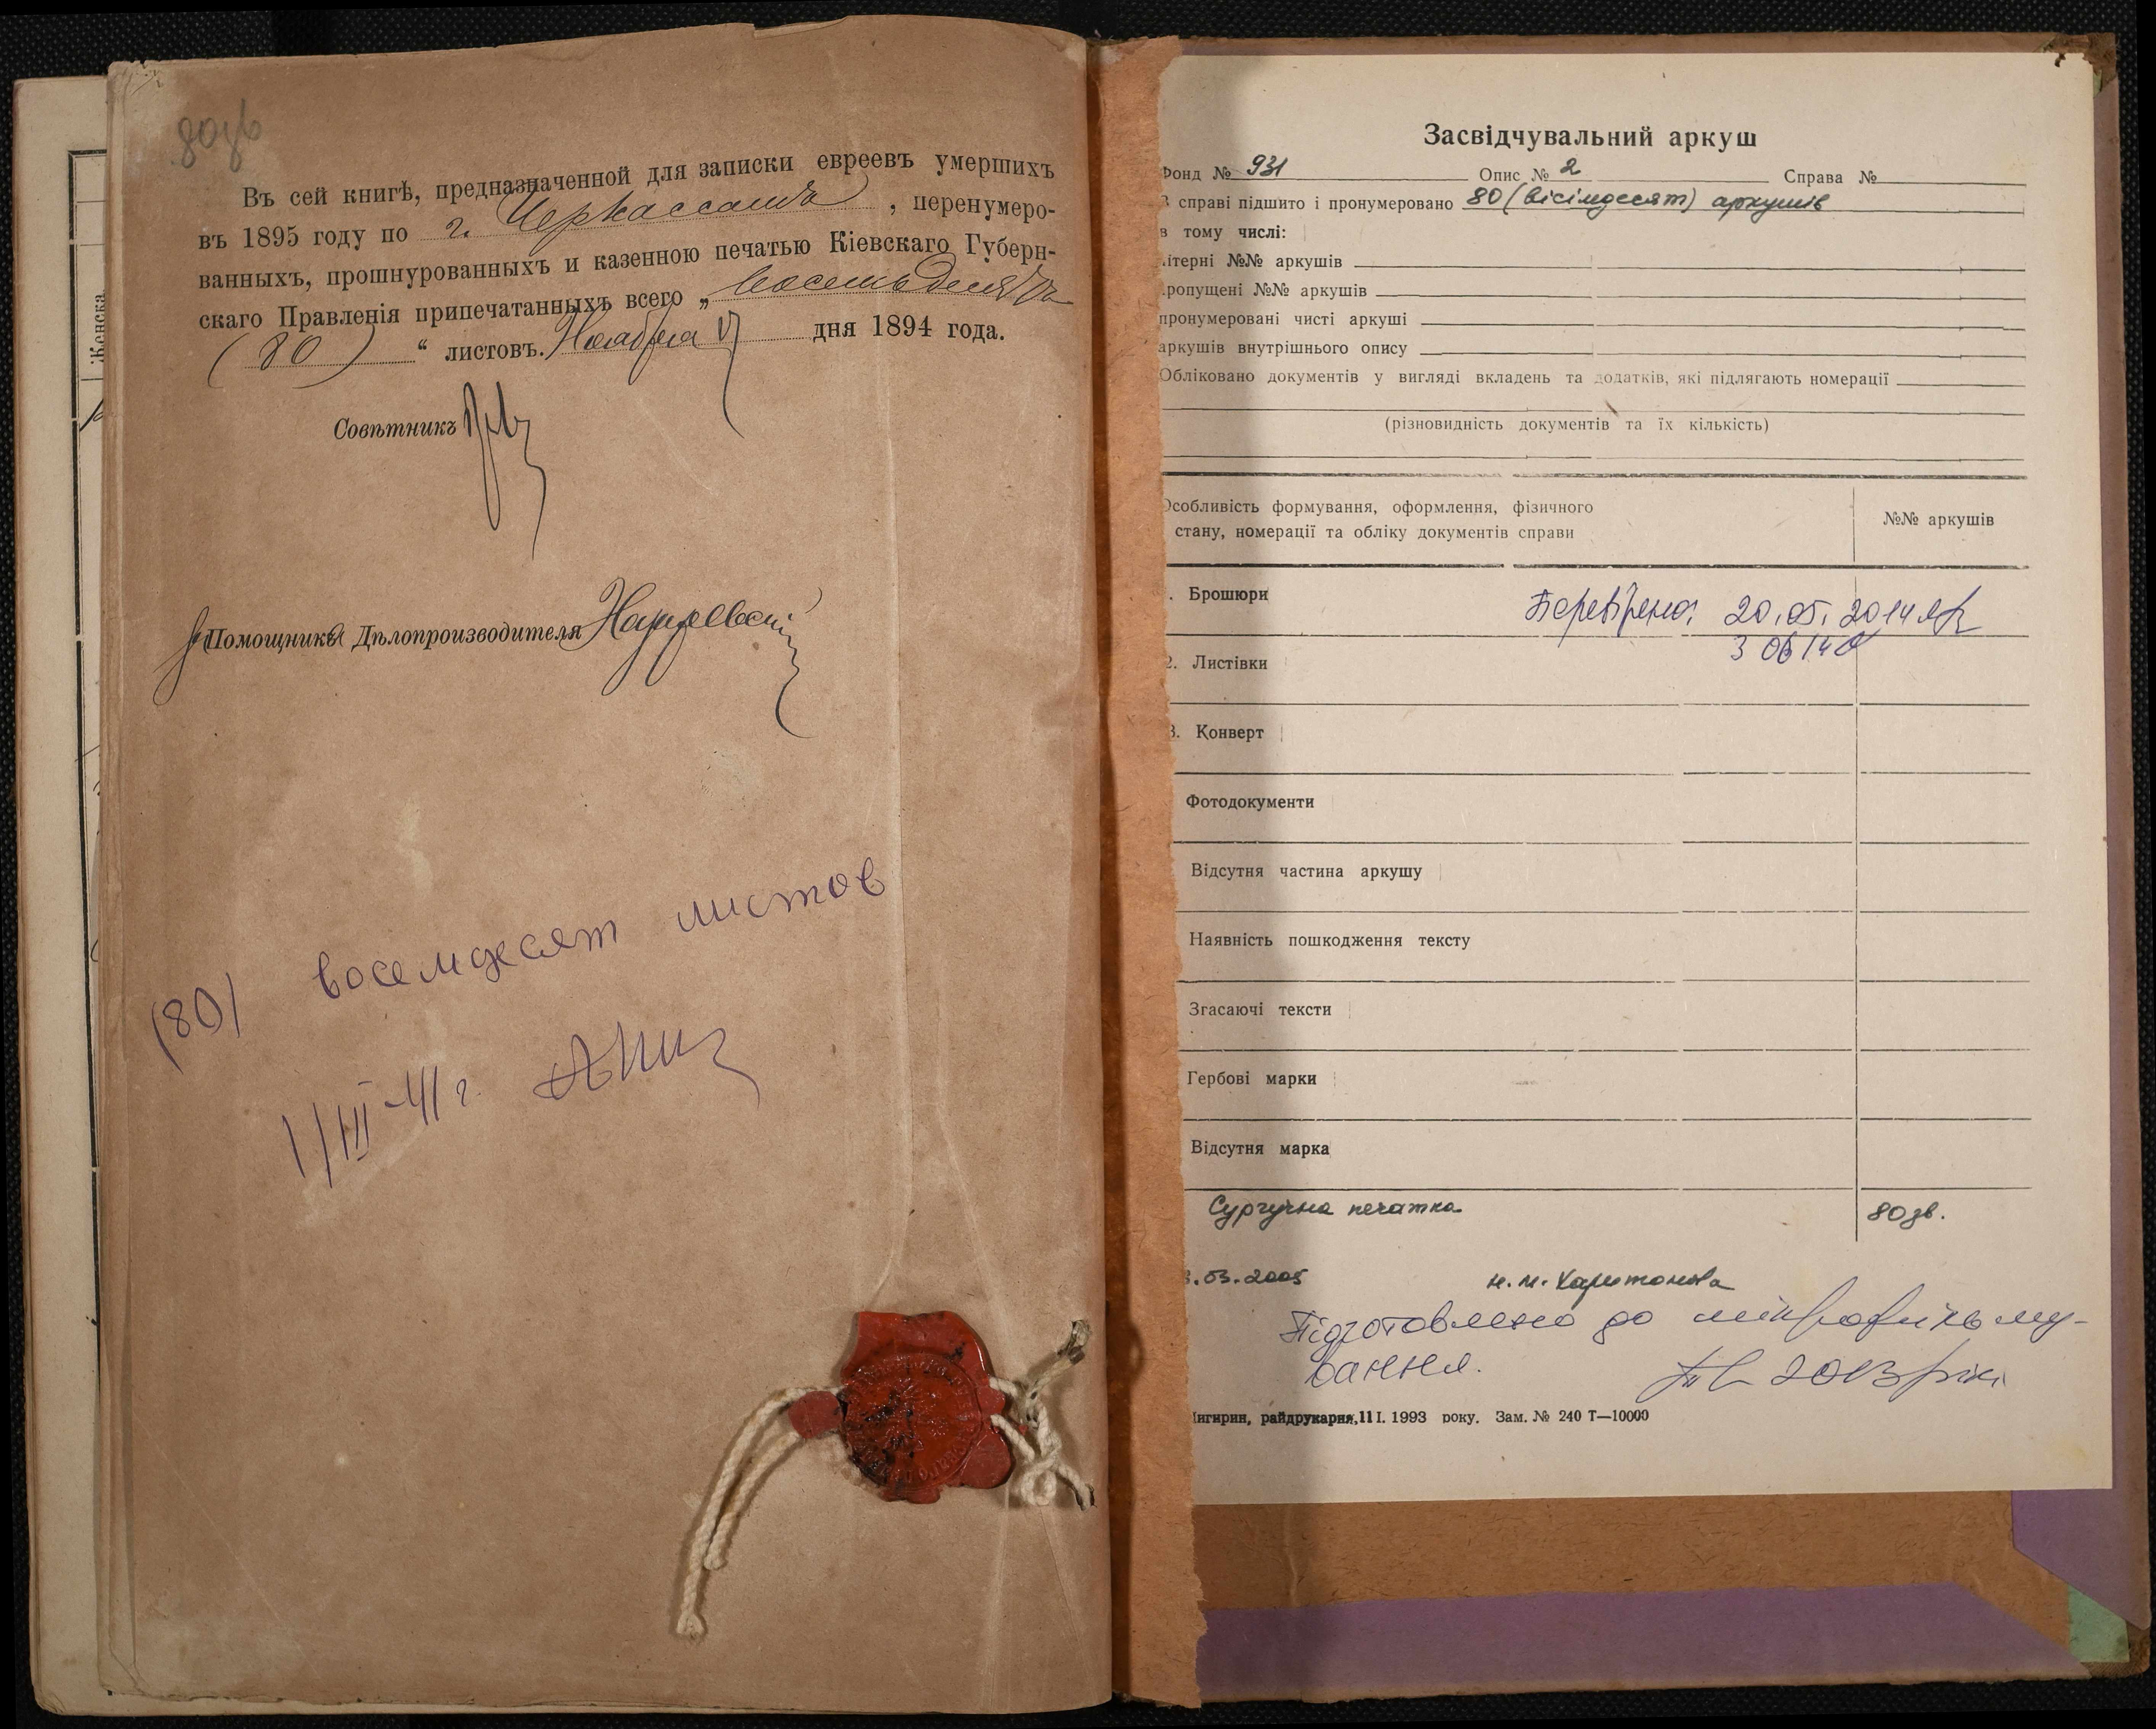 80зв
Въ сей книгѣ, предназначенной для записки евреевъ умершихъ
въ 1895 году по г. Черкассамъ, перенумеро-
ванныхъ, прошнурованныхъ и казенною печатью Кіевскаго Губерн-
скаго Правленія припечатанныхъ всего „ восемьдесятъ
(80) “ листовъ. Ноября дня 1894 года.
Совѣтникъ
Помощникъ Дѣлопроизводителя
(80) восемдесят листов
1/III-41 г.
Женска
Засвідчувальний аркуш
Фонд № 931 Опис № 2 Справа №
В справі підшито і пронумеровано 80 (вісімдесят) аркушів
в тому числі:
ітерні №№ аркушів
ропущені №№ аркушів
пронумеровані чисті аркуші
аркушів внутрішнього опису
Обліковано документів у вигляді вкладень та додатків, які підлягають номерації
(різновидність документів та їх кількість)
Особливість формування, оформлення, фізичного
стану, номерації та обліку документів справи
№№ аркушів
. Брошюри Перевірено: 20.05.2014
3 06 14
2. Листівки
3. Конверт
Фотодокументи
Відсутня частина аркушу
Наявність пошкодження тексту
Згасаючі тексти
Гербові марки
Відсутня марка
Сургучна печатка 80зв.
.03.2005 Н. М. Харитонова
Підготовлено до мікрофільму-
вання. 2013 рік
Чигирин, райдрукарня, 11I. 1993 року. Зам. № 240 Т—10000